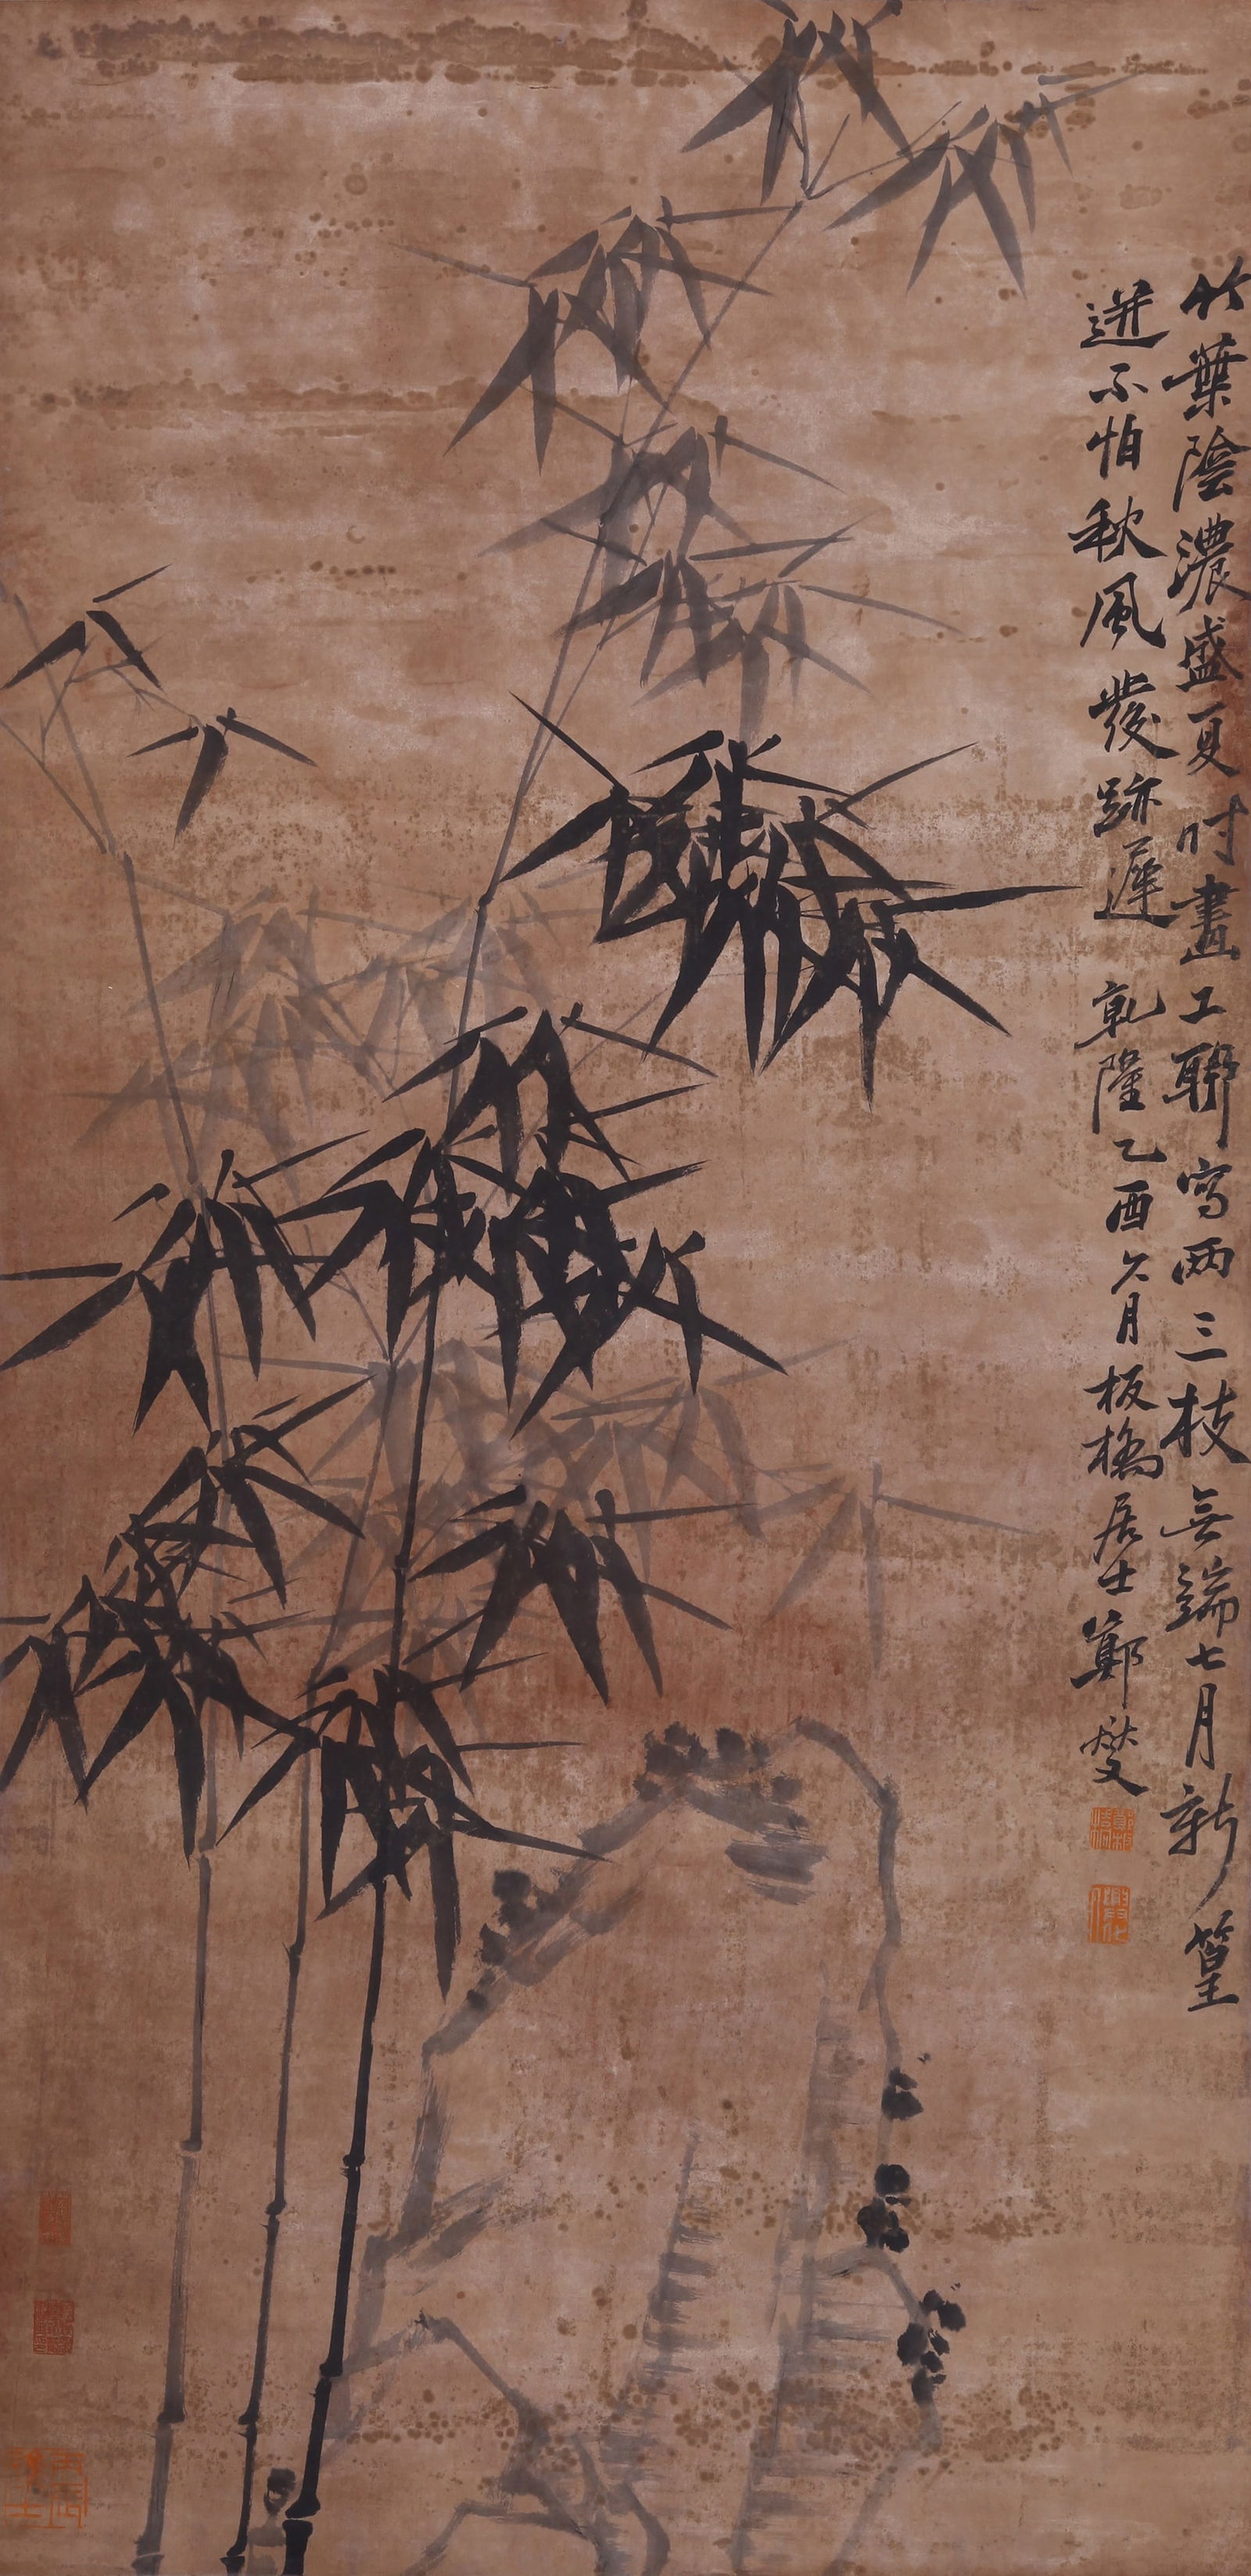 竹葉陰濃盛夏时畫工聊写兩三枝無端七月新篁
迸不怕秋風發跡遲 乾隆乙酉六月板橋居士鄭燮
鄭燮